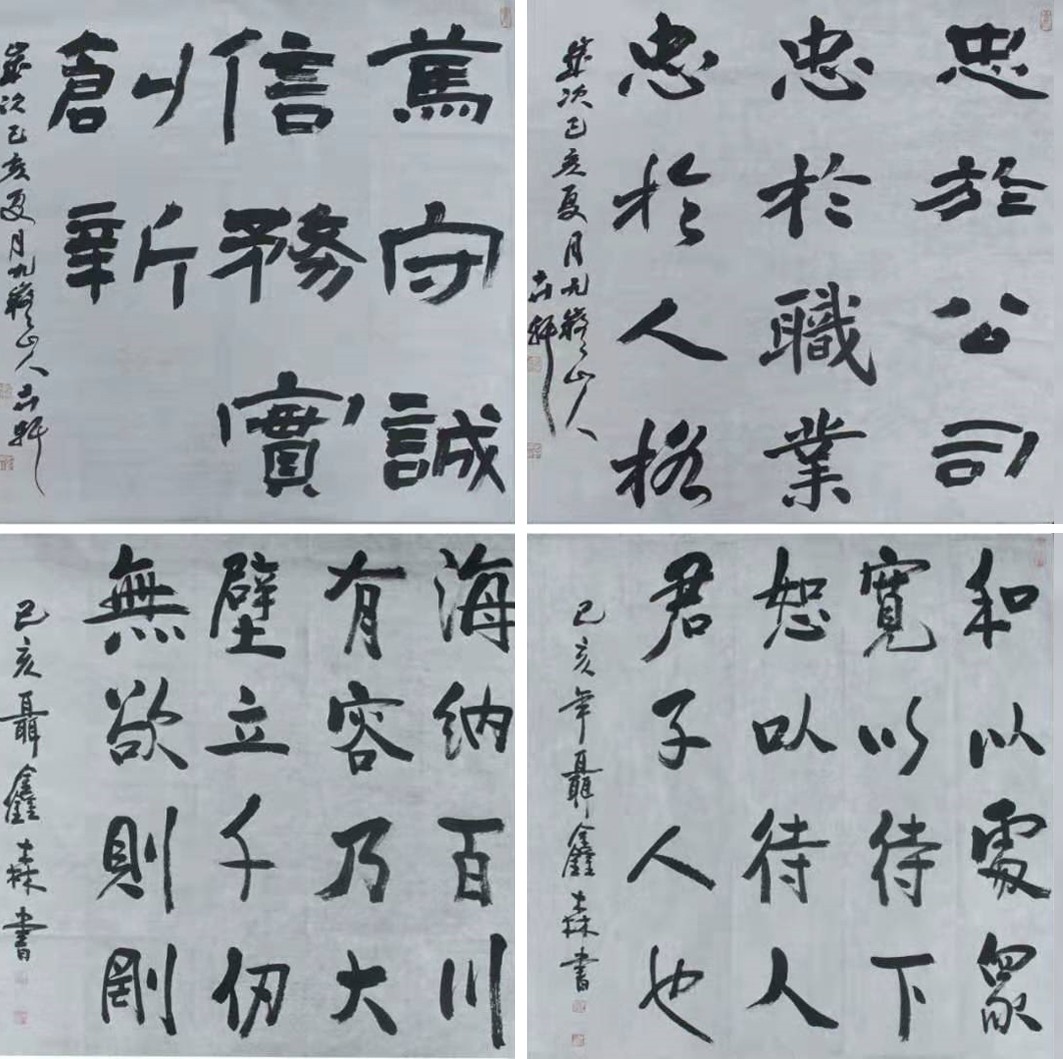 篤守誠
信務實
創新
歲次己亥夏月九嶷山人
忠於公司
忠於職業
忠於人格
歲次己亥夏月九嶷山人
海納百川
有容乃大
壁立千仞
無欲則剛
己亥聶鑫森書
和以處眾
寬以待下
恕以待人
君子人也
己亥年聶鑫森書